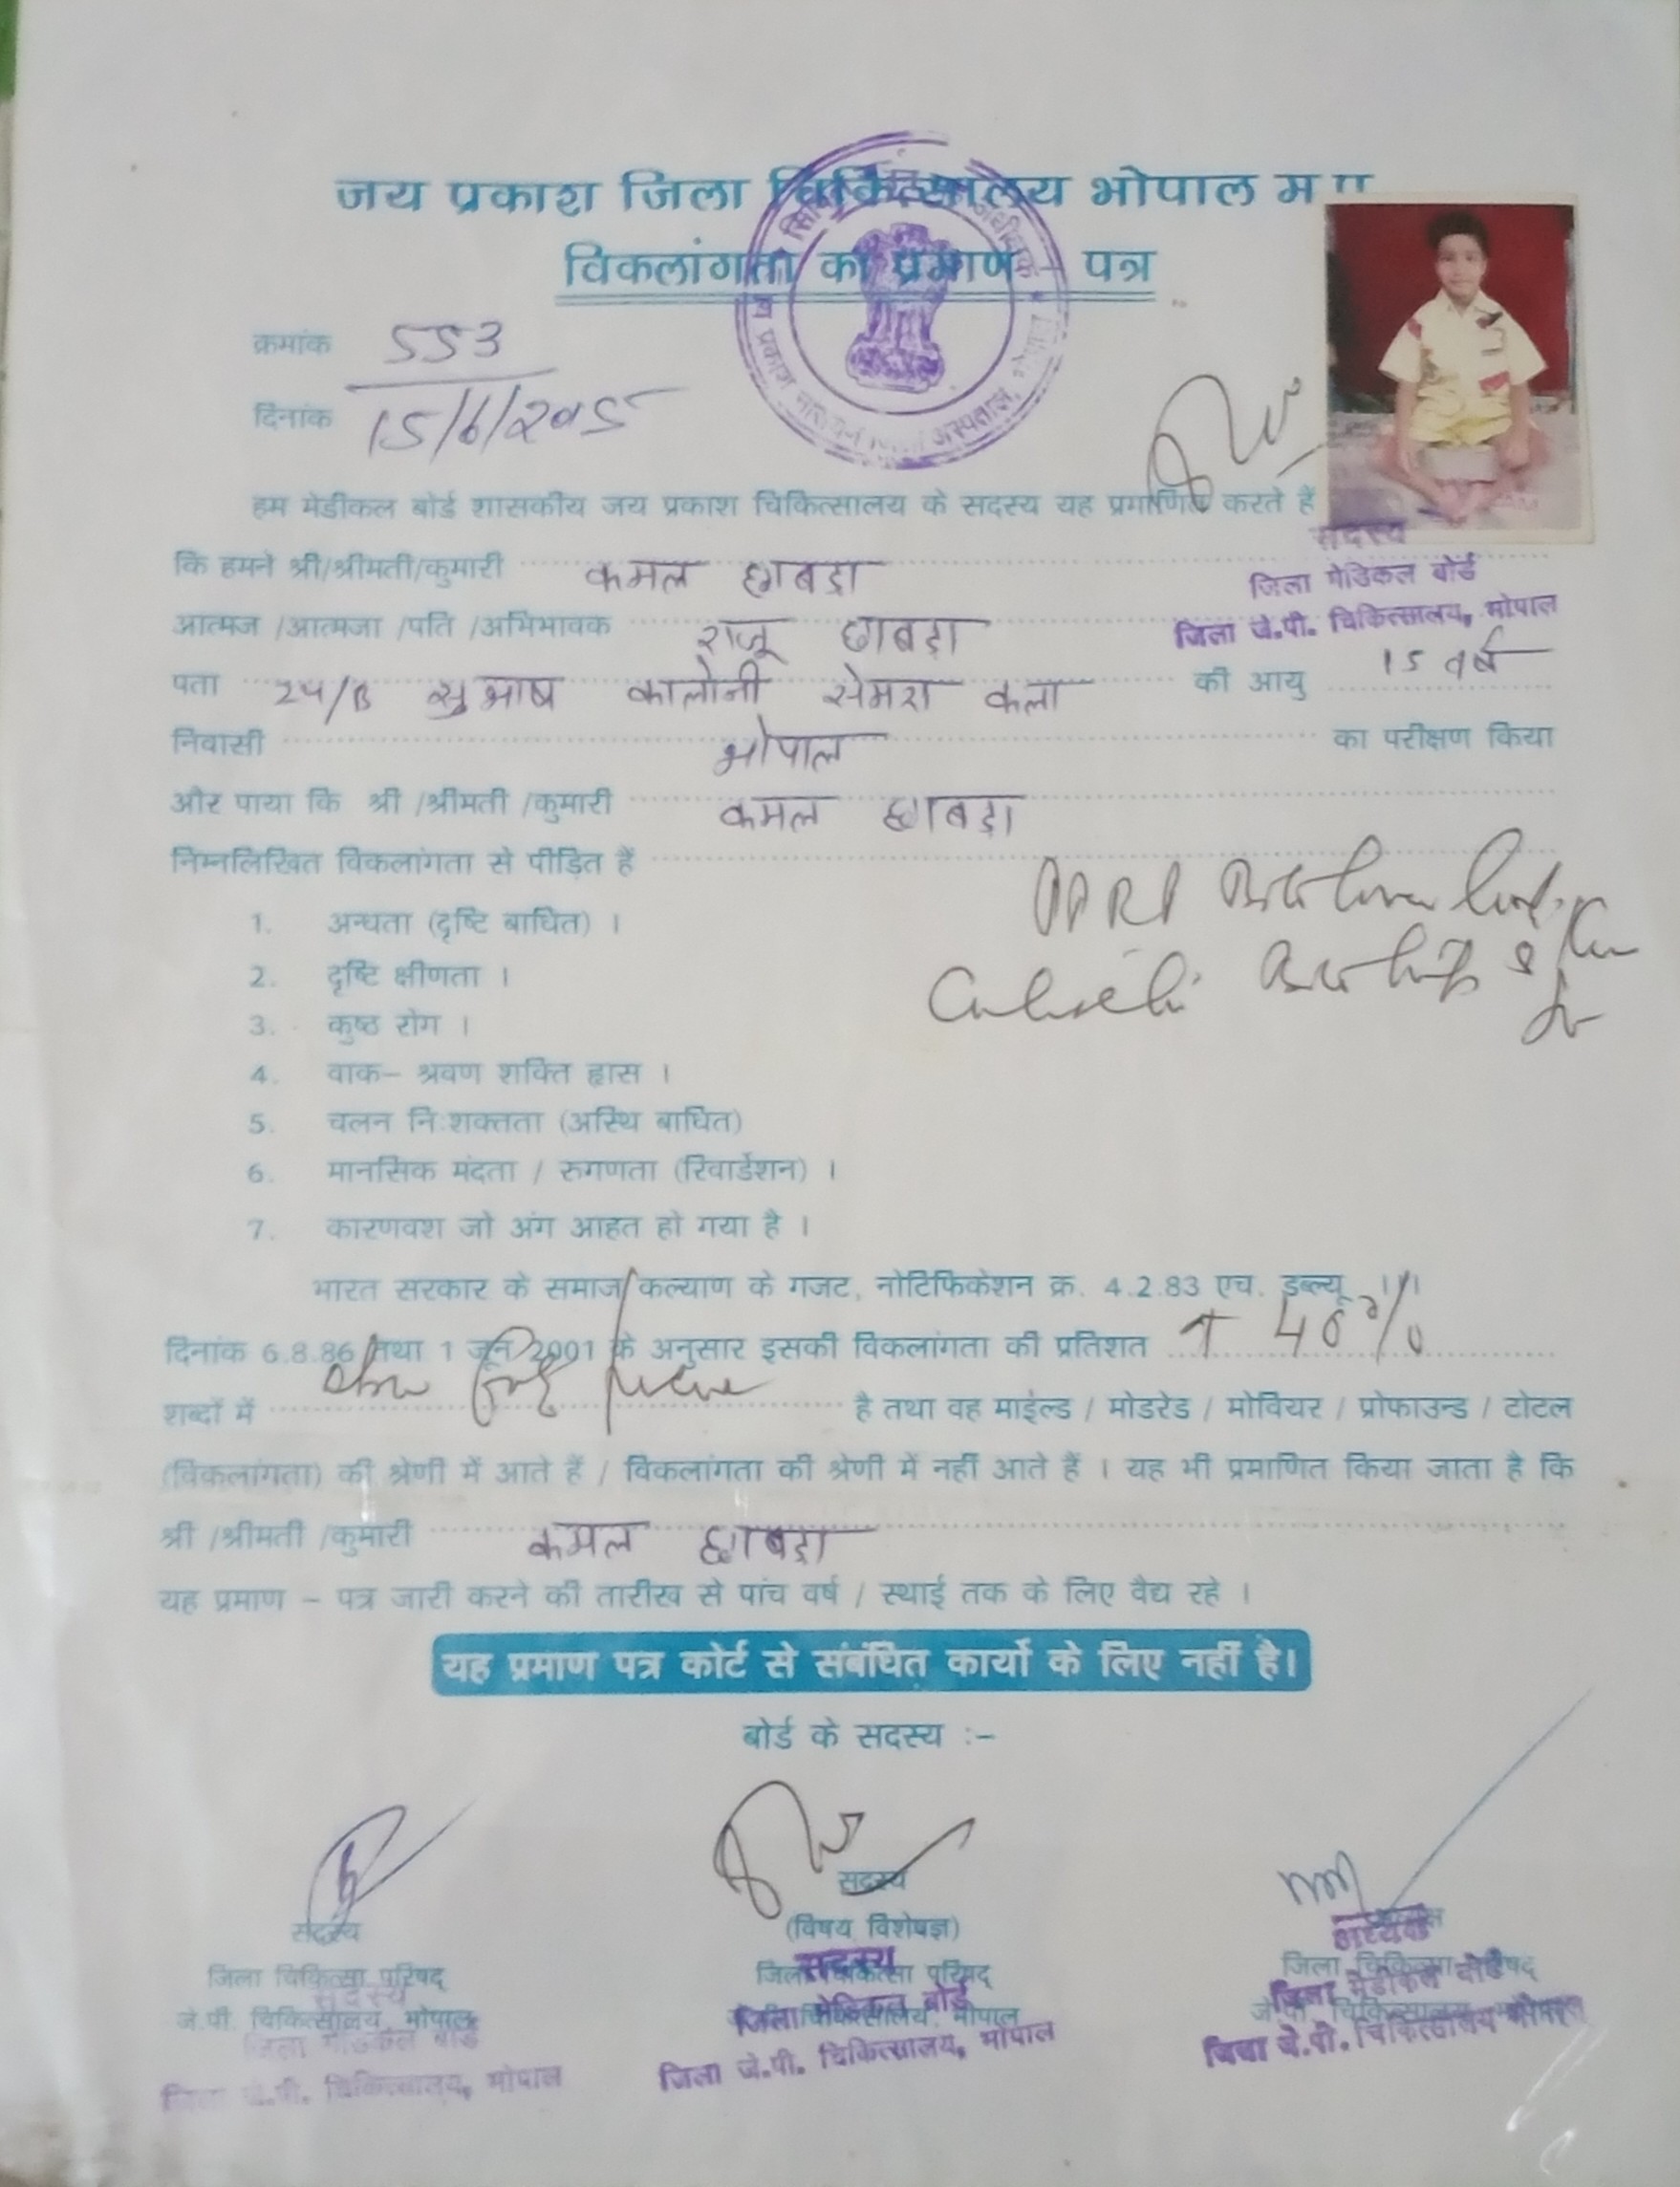 जय प्रकाश जिला चिकित्सालय भोपाल म
विकलांगता का प्रमाण – पत्र
क्रमांक 553
दिनांक 15/6/2005
हम मेडीकल बोर्ड शासकीय जय प्रकाश चिकित्सालय के सदस्य यह प्रमाणित करते हैं
सदस्य
जिला मेडिकल बोर्ड
जिला जे.पी. चिकित्सालय, भोपाल
कि हमने श्री/श्रीमती/कुमारी कमल छाबड़ा
आत्मज /आत्मजा /पति /अभिभावक राजू छाबड़ा
पता 24/B सुभाष कालोनी सेमरा कला की आयु 15 वर्ष
निवासी भोपाल का परीक्षण किया
और पाया कि श्री /श्रीमती /कुमारी कमल छाबड़ा
निम्नलिखित विकलांगता से पीड़ित हैं
PPRP
1. अन्धता (दृष्टि बाधित) ।
2. दृष्टि क्षीणता ।
3. कुष्ठ रोग ।
4. वाक– श्रवण शक्ति ह्रास ।
5. चलन नि:शक्तता (अस्थि बाधित)
6. मानसिक मंदता / रुगणता (रिवार्डेशन) ।
7. कारणवश जो अंग आहत हो गया है ।
भारत सरकार के समाज कल्याण के गजट, नोटिफिकेशन क्र. 4.2.83 एच. डब्ल्यू.
दिनांक 6.8.86 तथा 1 जून 2001 के अनुसार इसकी विकलांगता की प्रतिशत ↑ 40%
शब्दों में है तथा वह माईल्ड / मोडरेड / मोवियर / प्रोफाउन्ड / टोटल
(विकलांगता) की श्रेणी में आते हैं / विकलांगता की श्रेणी में नहीं आते हैं । यह भी प्रमाणित किया जाता है कि
श्री /श्रीमती /कुमारी कमल छाबड़ा
यह प्रमाण – पत्र जारी करने की तारीख से पांच वर्ष / स्थाई तक के लिए वैद्य रहे ।
यह प्रमाण पत्र कोर्ट से संबंधित कार्यो के लिए नहीं है।
बोर्ड के सदस्य :–
सदस्य
जिला चिकित्सा परिषद्
जे.पी. चिकित्सालय, भोपाल
सदस्य
जिला मेडिकल बोर्ड
जिला जे.पी. चिकित्सालय, भोपाल
सदस्य
(विषय विशेषज्ञ)
जिला चिकित्सा परिषद्
चिकित्सालय भोपाल
सदस्य
जिला मेडिकल बोर्ड
जिला जे.पी. चिकित्सालय, भोपाल
अध्यक्ष
जिला चिकित्सा परिषद्
जे.पी. चिकित्सालय
अध्यक्ष
जिला मेडीकल बोर्ड
जिला जे.पी. चिकित्सालय भोपाल